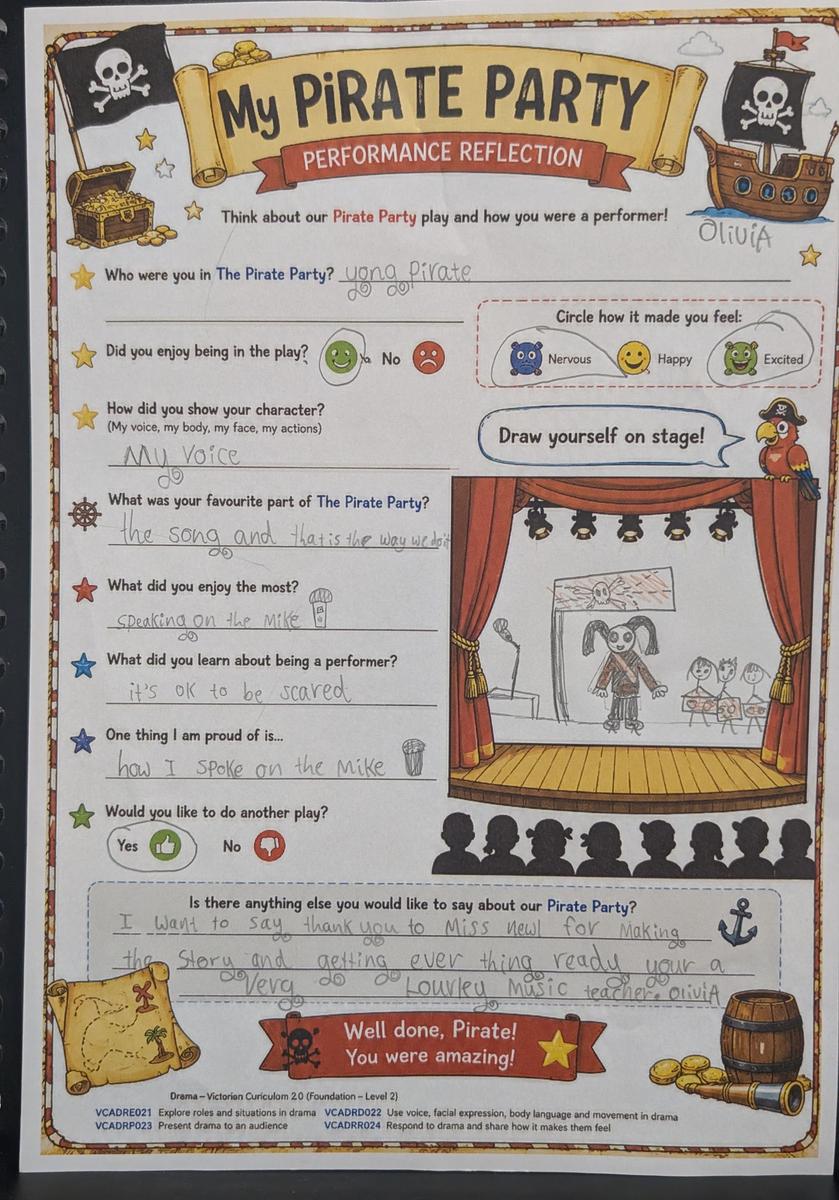 My PiRATE PARTY
PERFORMANCE REFLECTION
Think about our Pirate Party play and how you were a performer!
OliviA
Who were you in The Pirate Party? yong Pirate
Circle how it made you feel:
Did you enjoy being in the play? No
Nervous Happy Excited
How did you show your character?
(My voice, my body, my face, my actions)
My Voice
Draw yourself on stage!
What was your favourite part of The Pirate Party?
the song and that is the way we do it
What did you enjoy the most?
speaking on the Mike
What did you learn about being a performer?
it's ok to be scared
One thing I am proud of is...
how I spoke on the Mike
Would you like to do another play?
Yes No
Is there anything else you would like to say about our Pirate Party?
I want to say thank you to Miss newl for Making
the Story and getting ever thing ready your a
Very Lourley Music teacher. OliviA
Well done, Pirate!
You were amazing!
Drama – Victorian Curiculom 2.0 (Foundation – Level 2)
VCADRE021 Explore roles and situations in drama VCADRD022 Use voice, facial expression, body language and movement in drama
VCADRP023 Present drama to an audience VCADRR024 Respond to drama and share how it makes them feel